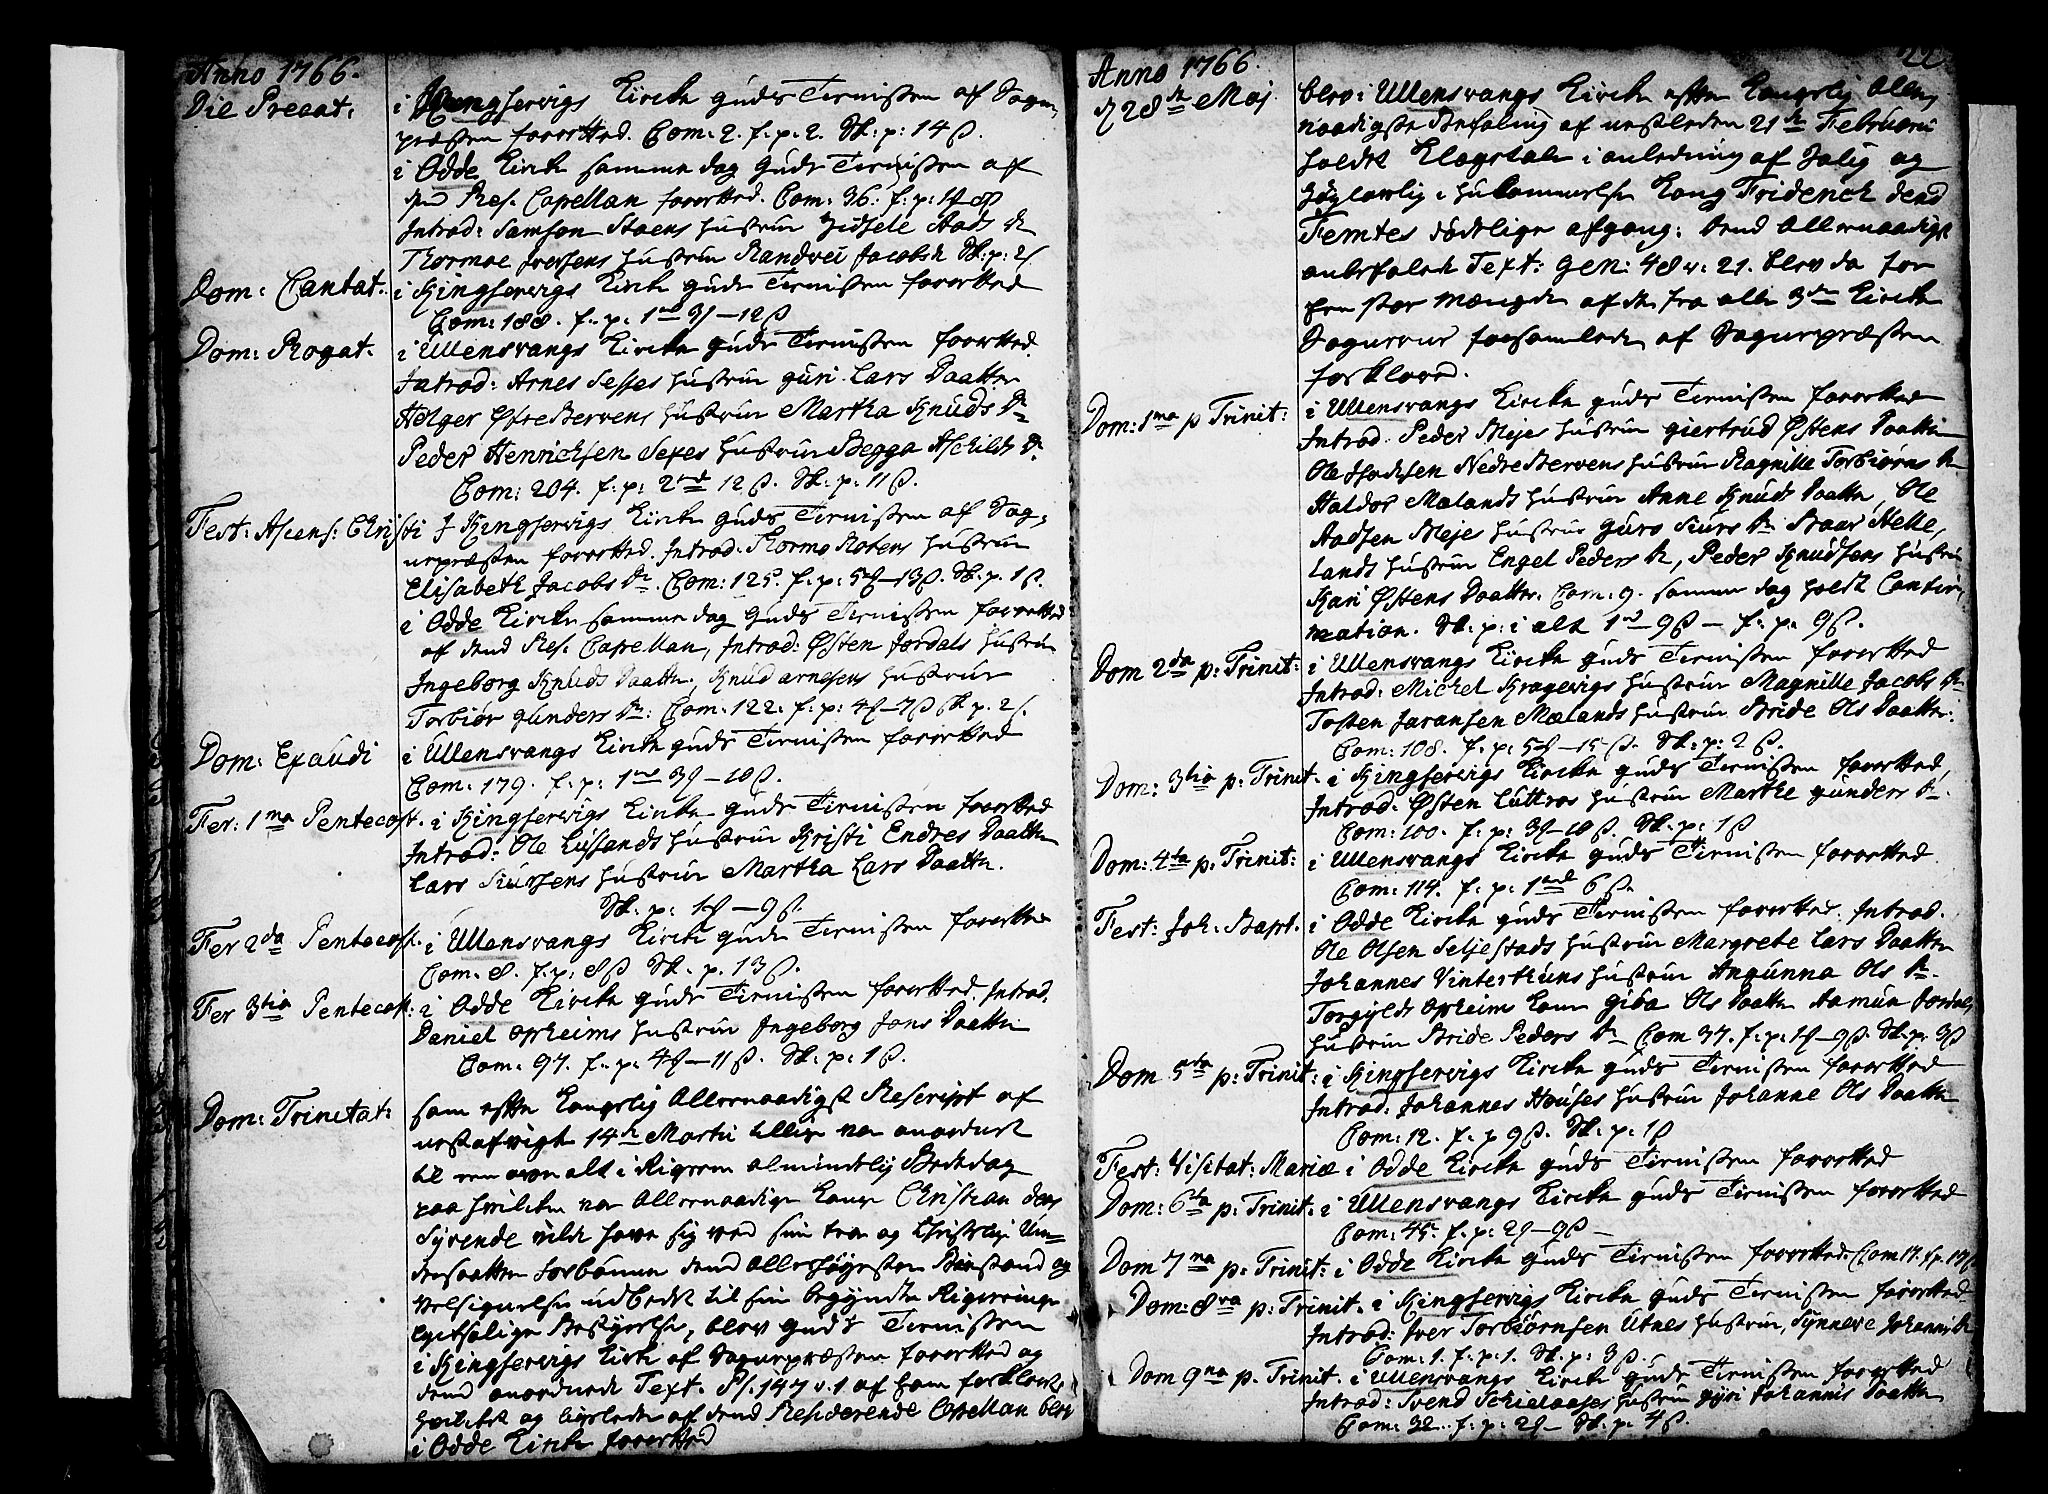 Anno 1766.
Die Precat:
i Kingservigs Kircke Guds Tienisten af Sogne
præsten forretted. Com: 2. f. p. 2. Sk: p: 14 ß.
i Odde Kircke samme dag Guds Tienisten af
den Res. Capellan forretted. Com: 36. f: p:
Introd: Samson Hustrue Aads D
Thormoe Iversens Hustrue Randvei Jacobs D Sk: p: 2ß.
Dom: Cantat.
i Kingservigs Kircke Guds Tienisten forretted
Com: 188. f. p: 1 3 – 12 ß
Dom: Rogat.
i Ullensvangs Kircke Guds Tienisten forretted.
Introd: Arnes Sexes Hustrue Guri Lars Daatter
Helger Øfre Børvens Hustrue Martha Knuds D.
Peder Henrichsen Sexes Hustrue Begga Aschilds D.
Com: 204. f. p: 2 12 ß. Sk: p: 11 ß.
Fest: Ascens: Christi
I Kingservigs Kircke Guds Tienisten af Sog-
nepræsten forretted. Introd: Thormo Hustrue
Elisabeth Jacobs D. Com: 125. f. p: 5 – 13 ß. Sk. p. 1 ß.
i Odde Kircke samme dag Guds Tienisten forretted
af dend Res. Capellan, Introd: Østen Jordals Hustrue
Ingeborg Knuds Daatter. Knud Arnesens Hustrue
Torbiør Gunders D: Com: 122. f: p: 4 – 7 ß Sk p. 2 ß.
Dom: Exaudi
i Ullensvangs Kircke Guds Tienisten forretted
Com: 179. f: p: 1 3 – 10 ß.
Fer: 1ma Pentecost.
i Kingservigs Kircke Guds Tienisten forretted
Introd: Ole Hustrue Kristi Endres Daatter
Lars Siursens Hustrue Martha Lars Daatter.
Sk: p: 1 – 9 ß.
Fer 2da Pentecost.
i Ullensvangs Kircke Guds Tienisten forretted
Com. 8. f. p: 8 ß Sk. p. 13 ß.
Fer 3tia Pentecost:
i Odde Kircke Guds Tienisten forretted. Introd.
Daniel Opheims Hustrue Ingeborg Jons Daatter
Com: 97. f: p: 4 – 11 ß. Sk: p: 1 ß.
Dom: Trinitat:
som efter Kongelig Allernaadigst Rescript af
nestafvigte 14de Martii tillige var anordnet
til en over alt i Rigerne almindelig Bededag
paa hvilken vor Allernaadigste Konge Christian den
Syvende vilde have sig ved sine troe og Christelige Un-
dersaatters Forbønner dend Allerhøyestes Biestand og
Velsignelse udbedet til sin begyndte Regierings
lycksalige Bestyrelse, blev Guds Tienisten
i Kingservigs Kirke af Sognepræsten forretted og
dend anordnede Text. Ps. 147 v. 1 af ham forklaret
hvilket og ligeledes af dend Residerende Capellan blev
i Odde Kircke forretted
22
Anno 1766.
d 28de Maj.
blev i Ullensvangs Kircke efter Kongelig Aller-
naadigste Befaling af nestleden 21de Februarii
holdet Klagetale i anledning af Salig og
Høylovlig i Hukommelse Kong Friderich dend
Femtes dødelige afgang: dend Allernaadigst
anbefalede Text: Gen: 48 v: 21. blev da for
een stor mængde af de fra alle 3de Kircke
Sognerne forsamlede af Sognepræsten
forklared.
Dom: 1ma p Trinit:
i Ullensvangs Kircke Guds Tienisten forretted
Introd: Peder Mejes Hustrue Giertrud Østens Daatter
Ole Nedre Børvens Hustrue Ragnille Torbiørns D
Haldor Mælands Hustrue Anne Knuds Daatter, Ole
Aadsen Mejes Hustrue Guro Siurs D. Helle-
lands Hustrue Engel Peders D, Peder Knudsens Hustrue
Kari Østens Daatter. Com: 9. samme dag holdt Confir-
mation. Sk: p: i alt 1 9 ß – f: p. 9 ß.
Dom 2da p: Trinit:
i Ullensvangs Kircke Guds Tienisten forretted
Introd: Michel Kragevigs Hustrue Magnille Jacobs D
Tosten Mælands Hustrue Bride Ols Daatter.
Com: 108. f. p: 5 – 15 ß. Sk: p: 2 ß.
Dom: 3tia p: Trinit.
i Kingservigs Kircke Guds Tienisten forretted,
Introd: Østen Luttroes Hustrue Marthe Gunders D.
Com: 100. f: p: 3 – 10 ß. Sk: p: 1 ß
Dom: 4ta p: Trinit:
i Ullensvangs Kircke Guds Tienisten forretted.
Com: 114. f: p: 1 6 ß.
Fest: Joh: Bapt.
i Odde Kircke Guds Tienisten forretted. Introd.
Ole Olsen Seljestads Hustrue Margrete Lars Daatter
Johannes Vinterthuns Hustrue Angunna Ols D.
Torgyls Opheim Kone Giba Ols Daatter Aamun Jordals
Hustrue Bride Peders D Com 37. f: p: 1 – 9 ß. Sk: p: 3 ß
Dom 5ta p: Trinit:
i Kingservigs Kircke Guds Tienisten forretted
Introd: Johannes Houses Hustrue Johanne Ols Daatter
Com: 12. f. p 9 ß. Sk: p: 1 ß
Fest: Visitat: Mariæ
i Odde Kircke Guds Tienisten forretted
Dom: 6ta p: Trinit.
i Ullensvangs Kircke Guds Tienisten forretted
Com: 45. f: p: 2 – 9 ß –
Dom 7ma p: Trinit:
i Odde Kircke Guds Tienisten forretted. Com 17. f. p. 17 ß
Dom: 8va p: Trinit.
i Kingservigs Kircke Guds Tienisten forretted
Introd: Iver Torbiørnsen Utnes Hustrue, Synneve Johannis D.
Com: 1. f. p: 1. Sk: p: 3 ß.
Dom 9na p. Trinit.
i Ullensvangs Kircke Guds Tienisten forretted
Introd: Svend Hustrue Gyri Johannis Daatter
Com: 32. f: p: 2 – Sk: p: 4 ß.